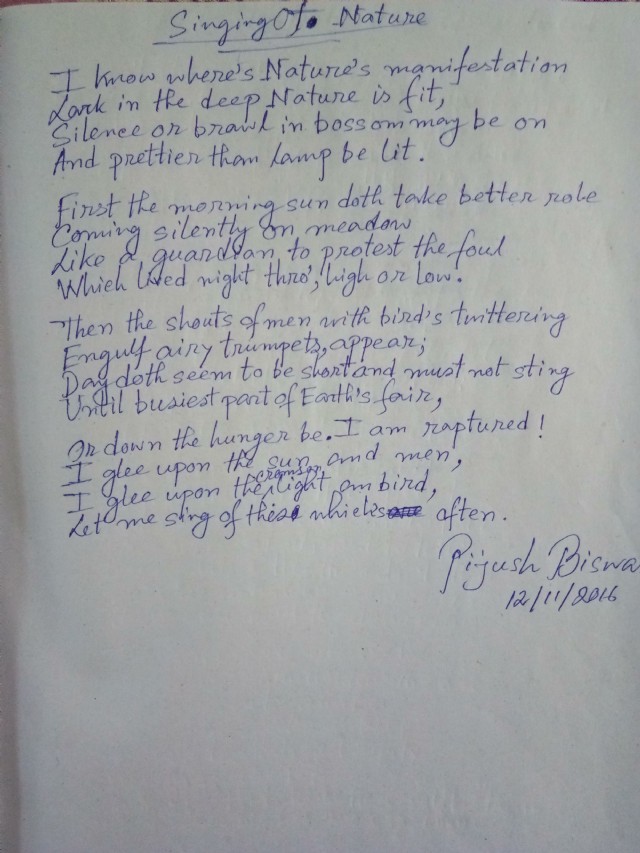 Singing Of Nature
I know where's Nature's manifestation
Lark in the deep Nature is fit,
Silence or brawl in bossom may be on
And prettier than lamp be lit.
First the morning sun doth take better role
Coming silently on meadow
Like a guardian to protest the foul
Which lived night thro', high or low.
Then the shouts of men with bird's twittering
Engulf airy trumpets, appear;
Day doth seem to be short and must not sting
Until busiest part of Earth's fair,
Or down the hunger be. I am raptured!
I glee upon the sun and men,
I glee upon the crimson light on bird,
Let me sing of these which's often.
Pijush Biswa
12/11/2016